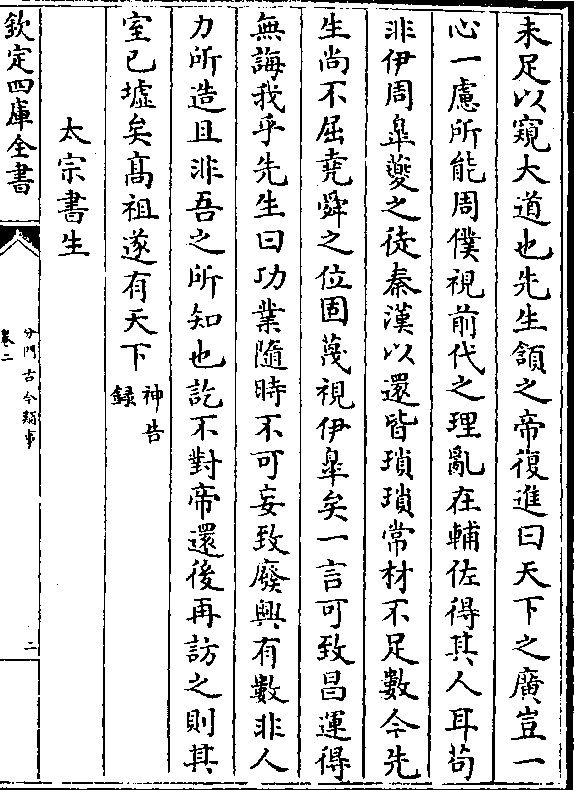 未足以窺大道也先生頷之帝復進曰天下之廣豈一
心一慮所能周僕視前代之理亂在輔佐得其人耳茍
非伊周臯夔之徒秦漢以還皆瑣瑣常材不足數今先
生尚不屈堯舜之位固蔑視伊臯矣一言可致昌運得
無誨我乎先生曰功業隨時不可妄致廢興有數非人
力所造且非吾之所知也訖不對帝還後再訪之則其
室已墟矣髙祖遂有天下神告
録
太宗書生
欽定四庫全書
分門古今類事
卷二
二